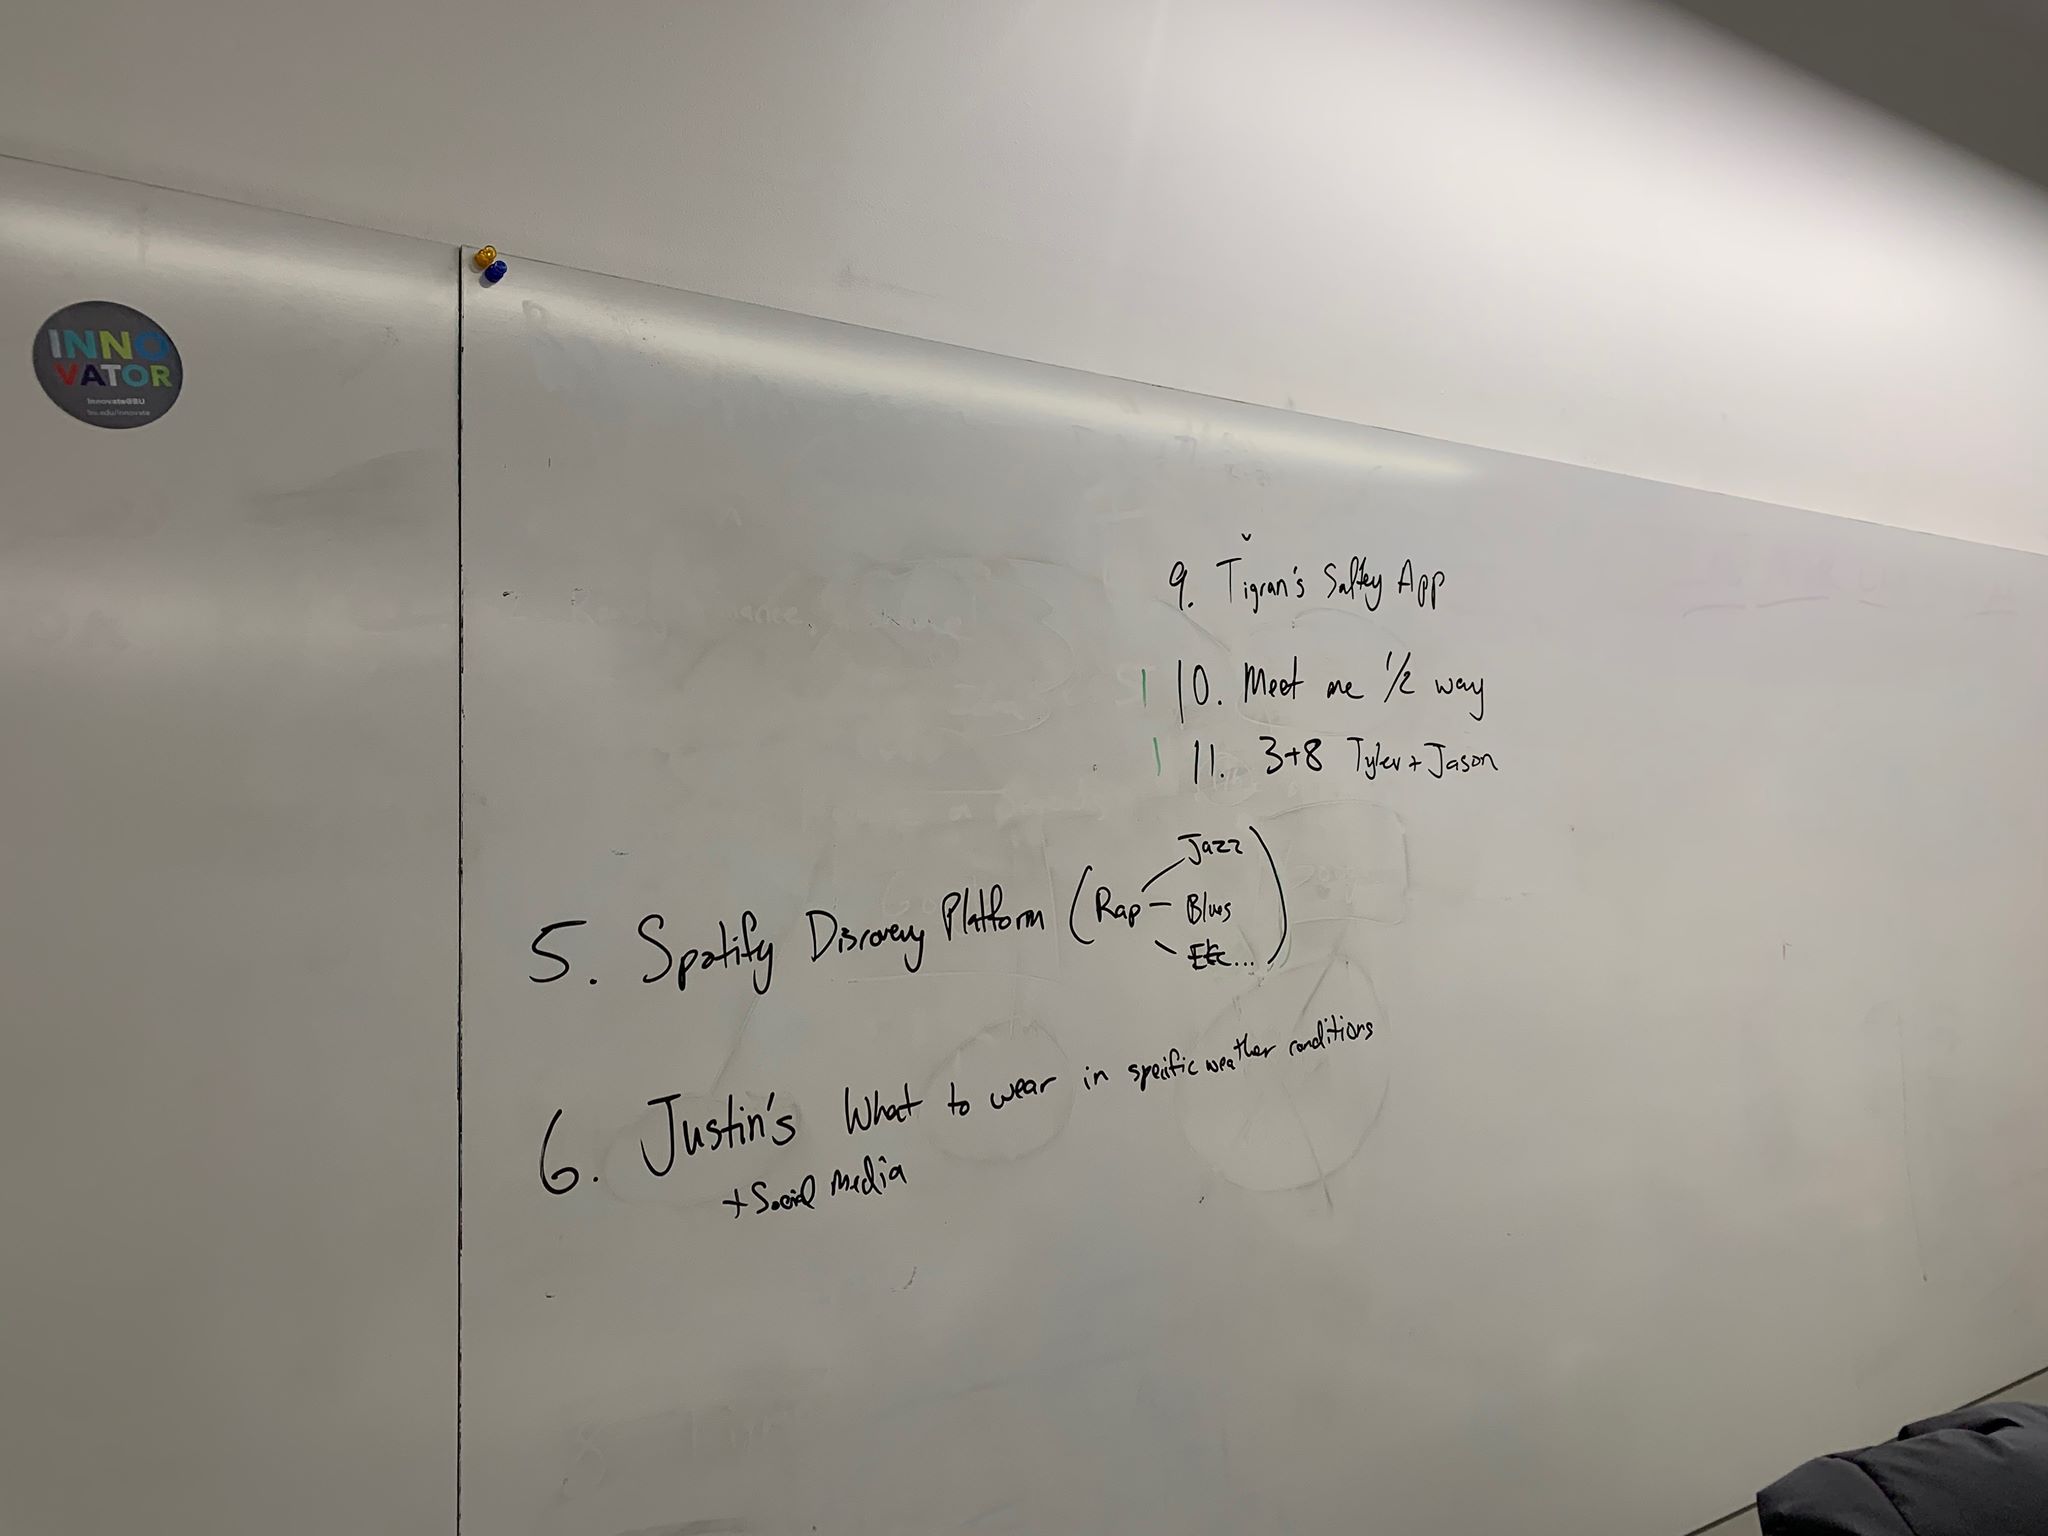 INNO
VATOR
Innovate@BU
bu.edu/innovate
9. Tigran's Saftey App
1 10. Meet me 1/2 way
1 11. 3+8 Tyler + Jason
5. Spotify Discovery Platform (Rap — Jazz
Blues
Etc...)
6. Justin's What to wear in specific weather conditions
+ Social Media